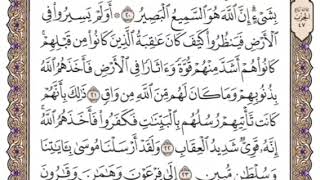 بِشَىۡءٍۗ إِنَّ ٱللَّهَ هُوَ ٱلسَّمِيعُ ٱلۡبَصِيرُ ٢٠ ۞ أَوَلَمۡ يَسِيرُواْ فِي
ٱلۡأَرۡضِ فَيَنظُرُواْ كَيۡفَ كَانَ عَٰقِبَةُ ٱلَّذِينَ كَانُواْ مِن قَبۡلِهِمۡۚ
كَانُواْ هُمۡ أَشَدَّ مِنۡهُمۡ قُوَّةٗ وَءَاثَارٗا فِي ٱلۡأَرۡضِ فَأَخَذَهُمُ ٱللَّهُ
بِذُنُوبِهِمۡ وَمَا كَانَ لَهُم مِّنَ ٱللَّهِ مِن وَاقٖ ٢١ ذَٰلِكَ بِأَنَّهُمۡ
كَانَت تَّأۡتِيهِمۡ رُسُلُهُم بِٱلۡبَيِّنَٰتِ فَكَفَرُواْ فَأَخَذَهُمُ ٱللَّهُۚ
إِنَّهُۥ قَوِيّٞ شَدِيدُ ٱلۡعِقَابِ ٢٢ وَلَقَدۡ أَرۡسَلۡنَا مُوسَىٰ بِـَٔايَٰتِنَا
وَسُلۡطَٰنٖ مُّبِينٍ ٢٣ إِلَىٰ فِرۡعَوۡنَ وَهَٰمَٰنَ وَقَٰرُونَ